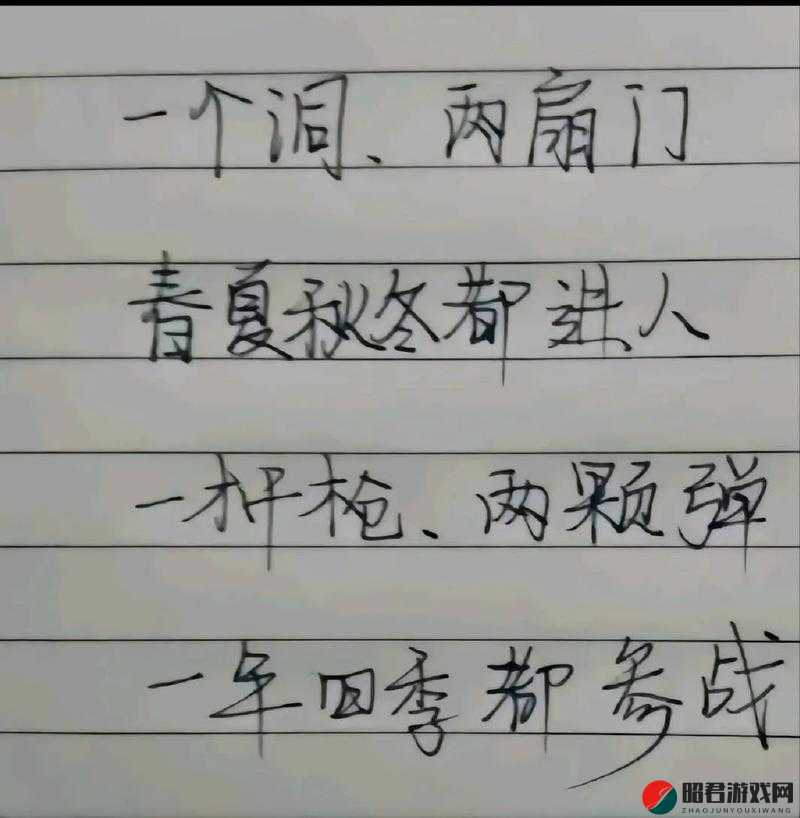 一个洞、两扇门
春夏秋冬都进人
一杆枪、两颗弹
一年四季都参战
昭君游戏网
ZHAOJUNYOUXIWANG